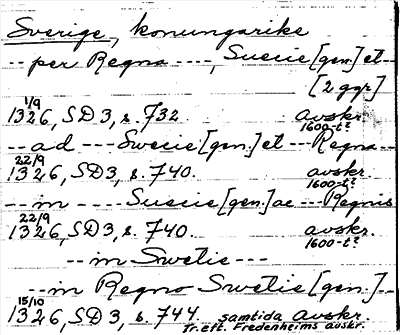 Sverige, konungarike
-- per Regna ----, Suecie [gen.] et --
[2 ggr]
1/9
1326, SD 3, s. 732. avskr.
1600-t?
-- ad --- Swecie [gen.] et --- Regna --
22/9
1326, SD 3, s. 740. avskr.
1600-t?
-- in ---- Suecie [gen.] ac --- Regnis
22/9
1326, SD 3, s. 740. avskr.
1600-t?
-- in Swetie ---
-- in Regno Swetie [gen.] --
15/10
1326, SD 3, s. 744. samtida avskr.
Tr. eft. Fredenheims avskr.